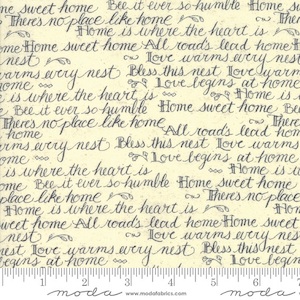 sweet home Bee it ever so humble Home s
There's no place like home
Home is where the heart is
Home sweet home All roads lead home
nest Love warms every nest
warms every nest Bless this nest Love warms
home Love begins at home
e is where the heart is
Bee it ever so humble Home sweet home
There's no place like home
home All roads lead home
arms every nest Bless this nest
Love begins at home
Home is where the heart is
Bee it ever so humble Home sweet home
like home There's no place
Home is where the heart is
Home sweet home All roads lead home Home sweet
nest Love warms every nest
Love warms every nest Bless this nest
egins at home Love begins at home
1 2 3 4 5 6 7
moda www.modafabrics.com moda